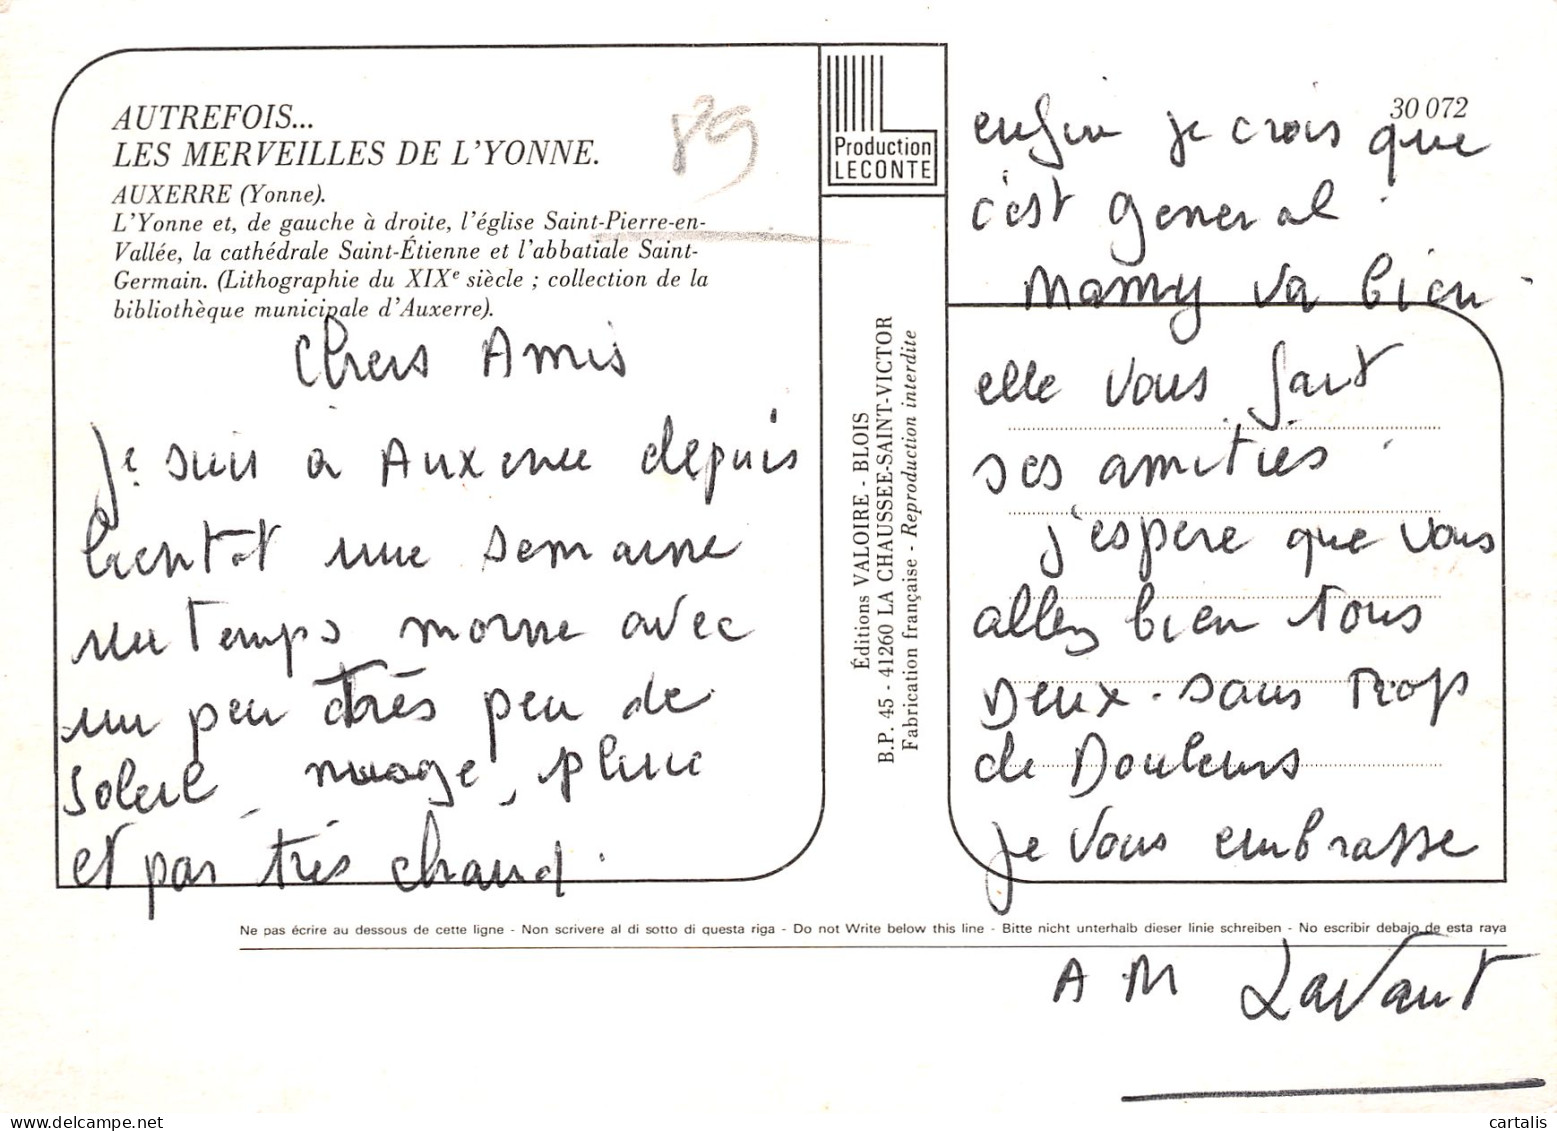 AUTREFOIS...
LES MERVEILLES DE L'YONNE.
AUXERRE (Yonne).
L'Yonne et, de gauche à droite, l'église Saint-Pierre-en-
Vallée, la cathédrale Saint-Étienne et l'abbatiale Saint-
Germain. (Lithographie du XIXe siècle ; collection de la
bibliothèque municipale d'Auxerre).
89
Chers Amis
Je suis à Auxerre depuis
bientot une semaine
un temps morne avec
un peu très peu de
soleil, nuage, pluie
et pas très chaud.
Production
LECONTE
Éditions VALOIRE - BLOIS
B.P. 45 - 41260 LA CHAUSSEE-SAINT-VICTOR
Fabrication française - Reproduction interdite
30 072
enfin je crois que
c'est general.
Mamy va bien.
elle vous fait
ses amitiés.
j'espere que vous
allez bien tous
Deux. sans trop
de Douleurs
je vous embrasse
Ne pas écrire au dessous de cette ligne - Non scrivere al di sotto di questa riga - Do not Write below this line - Bitte nicht unterhalb dieser linie schreiben - No escribir debajo de esta raya
A M Lavaut
cartalis